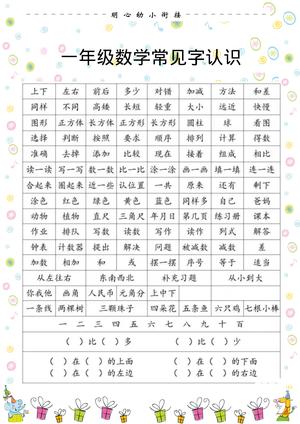 朋心幼小衔接
一年级数学常见字认识
上下 左右 前后 多少 对错 加减 方法 和差
同样 不同 高矮 长短 轻重 大小 远近 快慢
图形 正方体 长方体 正方形 长方形 圆柱 球 看图
选择 判断 按照 要求 顺序 排列 计算 得数
准确 去掉 添加 比较 现在 接着 组成 相比
读一读 写一写 数一数 比一比 涂一涂 画一画 填一填 连一连
合起来 圈起来 近一些 认位置 一共 原来 还有 剩下
涂色 红色 绿色 黄色 蓝色 同样多 自己 爸妈
动物 植物 直尺 三角尺 年月日 第几页 练习册 课本
作业 排队 写数 读数 写作 读作 列式 解答
钟表 计数器 提出 解决 问题 被减数 减数 差
加数 相加 和 或 摆一摆 序号 等于 适当
从左往右 东南西北 补充习题 从小到大
你我他 画角 人民币 元角分 上中下
一条线 两棵树 三颗珠子 四朵花 五条鱼 六只鸡 七根小棒
一 二 三 四 五 六 七 八 九 十 百
( )比( )多 ( )比( )少
( )在( )的上面 ( )在( )的下面
( )在( )的左边 ( )在( )的右边